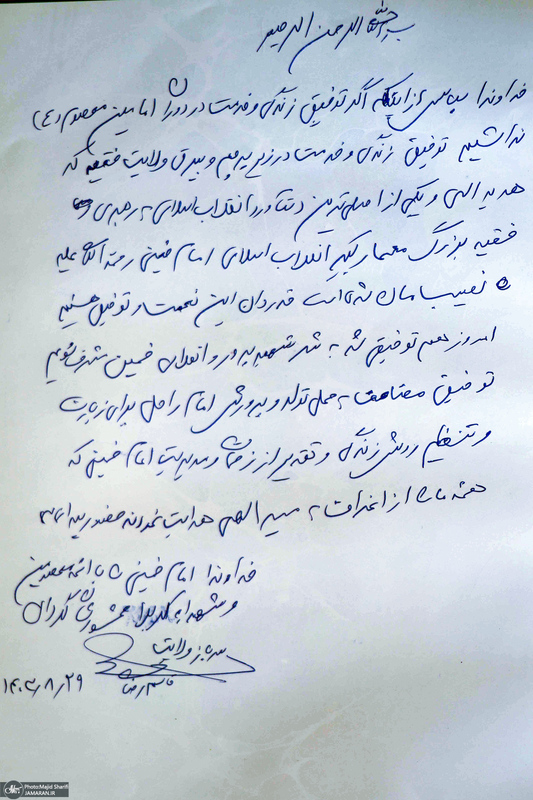 بسم الله الرحمن الرحیم
خداوندا سپاس از اینکه اگر توفیق زندگی و خدمت در دوران امامین معصوم (ع)
نداشتیم توفیق زندگی و خدمت در زیر پرچم و بیرق ولایت فقیه که
هدیه الهی و یکی از اصلی‌ترین دستاورد انقلاب اسلامی به رهبری
فقیه بزرگ معمار کبیر انقلاب اسلامی امام خمینی رحمة الله علیه
نصیب مان شده است قدردان این نعمت و توفیق هستیم
امروز هم توفیقی شد به شهر شهید پرور و انقلابی خمین مشرف شویم
توفیق به محل تولد و پرورش امام راحل برای زیارت
و تنظیم روش زندگی و تقدیر از زحمات و مدیریت امام خمینی که
همه ما را از انحرافات به مسیر الهی هدایت نمودند حضور پیدا
خداوندا امام خمینی را با ائمه معصومین
و شهدای کربلا محشور گردان
سرباز ولایت
قاسم رضائی
۱۴۰۳/۸/۲۹
Photo:Majid Sharifi
JAMARAN.IR